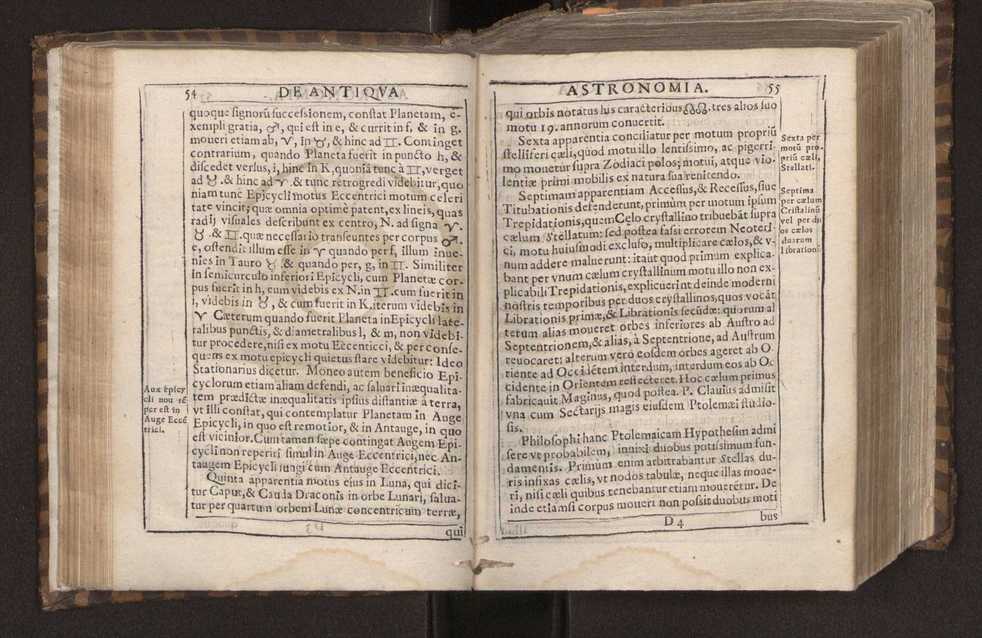 54 DE ANTIQVA
quoque signorũ successionem, constat Planetam, e-
xempli gratia, ♂, qui est in e, & currit in f, & in g.
moueri etiam ab, ♈, in ♉, & hinc ad ♊. Continget
contrarium, quando Planeta fuerit in puncto h, &
discedet versus, i, hinc in K, quoniã tunc à ♊, verget
ad ♉. & hinc ad ♈. & tunc retrogredi videbitur, quo
niam tunc Epicycli motus Eccentrici motum celeri
tate vincit; quæ omnia optimè patent, ex lineis, quas
radij visuales describunt ex centro, N. ad signa ♈.
♉. & ♊. quæ necessario transeuntes per corpus ♂.
e, ostendit illum esse in ♈ quando per f, illum inue-
nies in Tauro ♉. & quando per, g, in ♊. Similiter
in semicirculo inferiori Epicycli, cum Planetæ cor-
pus fuerit in h, cum videbis ex N. in ♊. cum fuerit in
i, videbis in ♉, & cum fuerit in K. iterum videbis in
♈ Cæterum quando fuerit Planeta in Epicycli late-
ralibus punctis, & diametralibus l, & m, non videbi-
tur procedere, nisi ex motu Eccenticci, & per conse-
quens ex motu epicycli quietus stare videbitur: Ideo
Stationarius dicetur. Moneo autem beneficio Epi-
cyclorum etiam aliam defendi, ac saluari inæqualita-
tem prædictæ inæqualitatis ipsius distantiæ à terra,
vt illi constat, qui contemplatur Planetam in Auge
Epicycli, in quo est remotior, & in Antauge, in quo
est vicinior. Cum tamen sæpe contingat Augem Epi-
cycli non reperiri simul in Auge Eccentrici, nec An-
taugem Epicycli iungi cum Antauge Eccentrici.
Quinta apparentia motus eius in Luna, qui dici-
tur Caput, & Cauda Draconis in orbe Lunari, salua-
tur per quartum orbem Lunæ concentricum terræ,
qui
Aux epicy
cli nou sẽ
per est in
Auge Eccẽ
trici.
ASTRONOMIA. 55
qui orbis notatus his caracteribus ☊☋. tres alios suo
motu 19. annorum conuertit.
Sexta apparentia conciliatur per motum propriũ
stelliferi cæli, quod motu illo lentissimo, ac pigerri-
mo mouetur supra Zodiaci polos; motui, atque vio-
lentiæ primi mobilis ex natura sua renitendo.
Septimam apparentiam Accessus, & Recessus, siue
Titubationis defenderunt, primùm per motum ipsum
Trepidationis, quem Cęlo crystallino tribuebãt supra
cælum Stellatum: sed postea fassi errorem Neoteri-
ci, motu huiusmodi excluso, multiplicare cælos, & v-
num addere maluerunt: ita ut quod primum explica-
bant per vnum cælum crystallinum motu illo non ex-
plicabili Trepidationis, explicuerint deinde moderni
nostris temporibus per duos crystallinos, quos vocãt
Librationis primæ, & Librationis secũdæ: quorum al
terum alias moueret orbes inferiores ab Austro ad
Septentrionem, & alias, à Septentrione, ad Austrum
reuocaret: alterum verò eosdem orbes ageret ab O-
riente ad Occidẽtem interdum, interdum eos ab Oc
cidente in Orientem reflecteret. Hoc cælum primus
fabricauit Maginus, quod postea. P. Clauius admisit
vna cum Sectarijs magis eiusdem Ptolemæi studio-
sis.
Philosophi hanc Ptolemaicam Hypothesim admi
sere vt probabilem, innixi duobus potissimum fun-
damentis. Primùm enim arbitrabantur Stellas du-
ris infixas cælis, vt nodos tabulæ, neque illas moue-
ri, nisi cæli quibus tenebantur etiam mouerẽtur. De
inde etiamsi corpus moueri non possit duobus moti
D 4 bus
Sexta per
motũ pro-
priũ cæli,
Stellati.
Septima
per cælum
Cristalinũ
vel per du
os cælos
duarum
librationũ